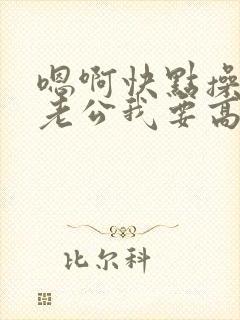 嗯啊快點操
老公我要高
比尔科